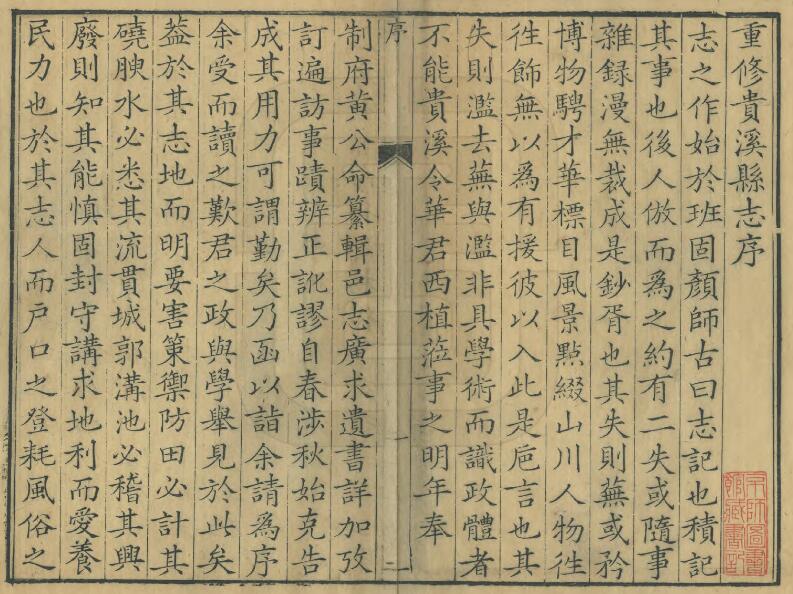 重修貴溪縣志序
志之作始於班固顏師古曰志記也積記
其事也後人倣而爲之約有二失或隨事
雜録漫無裁成是鈔胥也其失則蕪或矜
博物騁才華標目風景點綴山川人物徃
徃飾無以爲有援彼以入此是巵言也其
失則濫去蕪與濫非具學術而識政體者
不能貴溪令華君西植蒞事之明年奉
序
一
制府黄公命纂輯邑志廣求遺書詳加攷
訂遍訪事蹟辨正訛謬自春涉秋始克告
成其用力可謂勤矣乃函以詣余請爲序
余受而讀之歎君之政與學舉見於此矣
葢於其志地而明要害策禦防田必計其
磽腴水必悉其流貫城郭溝池必稽其興
廢則知其能慎固封守講求地利而愛養
民力也於其志人而戸口之登耗風俗之